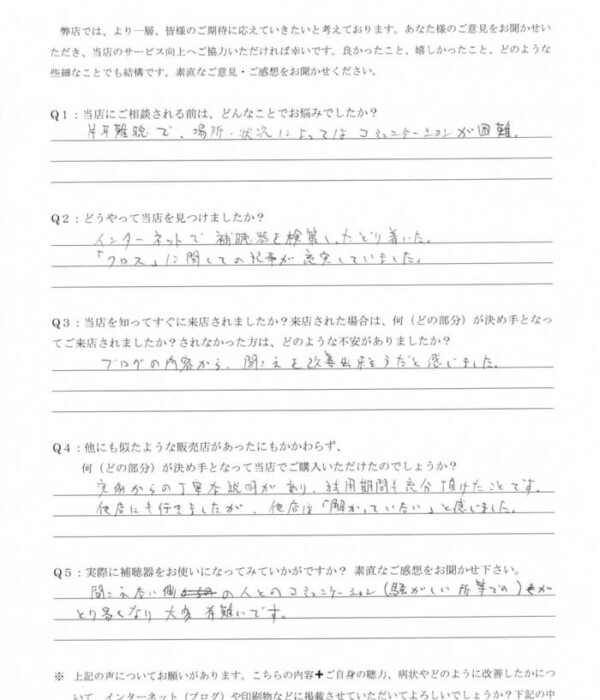 弊店では、より一層、皆様のご期待に応えていきたいと考えております。あなた様のご意見をお聞かせい
ただき、当店のサービス向上へご協力いただければ幸いです。良かったこと、嬉しかったこと、どのような
些細なことでも結構です。素直なご意見・ご感想をお聞かせください。
Q1：当店にご相談される前は、どんなことでお悩みでしたか？
片耳難聴で、場所・状況によってはコミュニケーションが困難。
Q2：どうやって当店を見つけましたか？
インターネットで補聴器を検索し、たどり着いた。
「クロス」に関しての記事が充実していました。
Q3：当店を知ってすぐに来店されましたか？来店された場合は、何（どの部分）が決め手となっ
てご来店されましたか？されなかった方は、どのような不安がありましたか？
ブログの内容から、聞こえを改善出来そうだと感じました。
Q4：他にも似たような販売店があったにもかかわらず、
何（どの部分）が決め手となって当店でご購入いただけたのでしょうか？
実例からの丁寧な説明があり、試用期間も充分頂けたことです。
他店にも行きましたが、他店は「解かっていない」と感じました。
Q5：実際に補聴器をお使いになってみていかがですか？ 素直なご感想をお聞かせ下さい。
聞こえない側の人とのコミュニケーション（騒がしい所等での）が
とり易くなり大変有難いです。
※ 上記の声についてお願いがあります。こちらの内容＋ご自身の聴力、病状やどのように改善したかにつ
いて、インターネット（ブログ）や印刷物などに掲載させていただいてよろしいでしょうか？下記の中